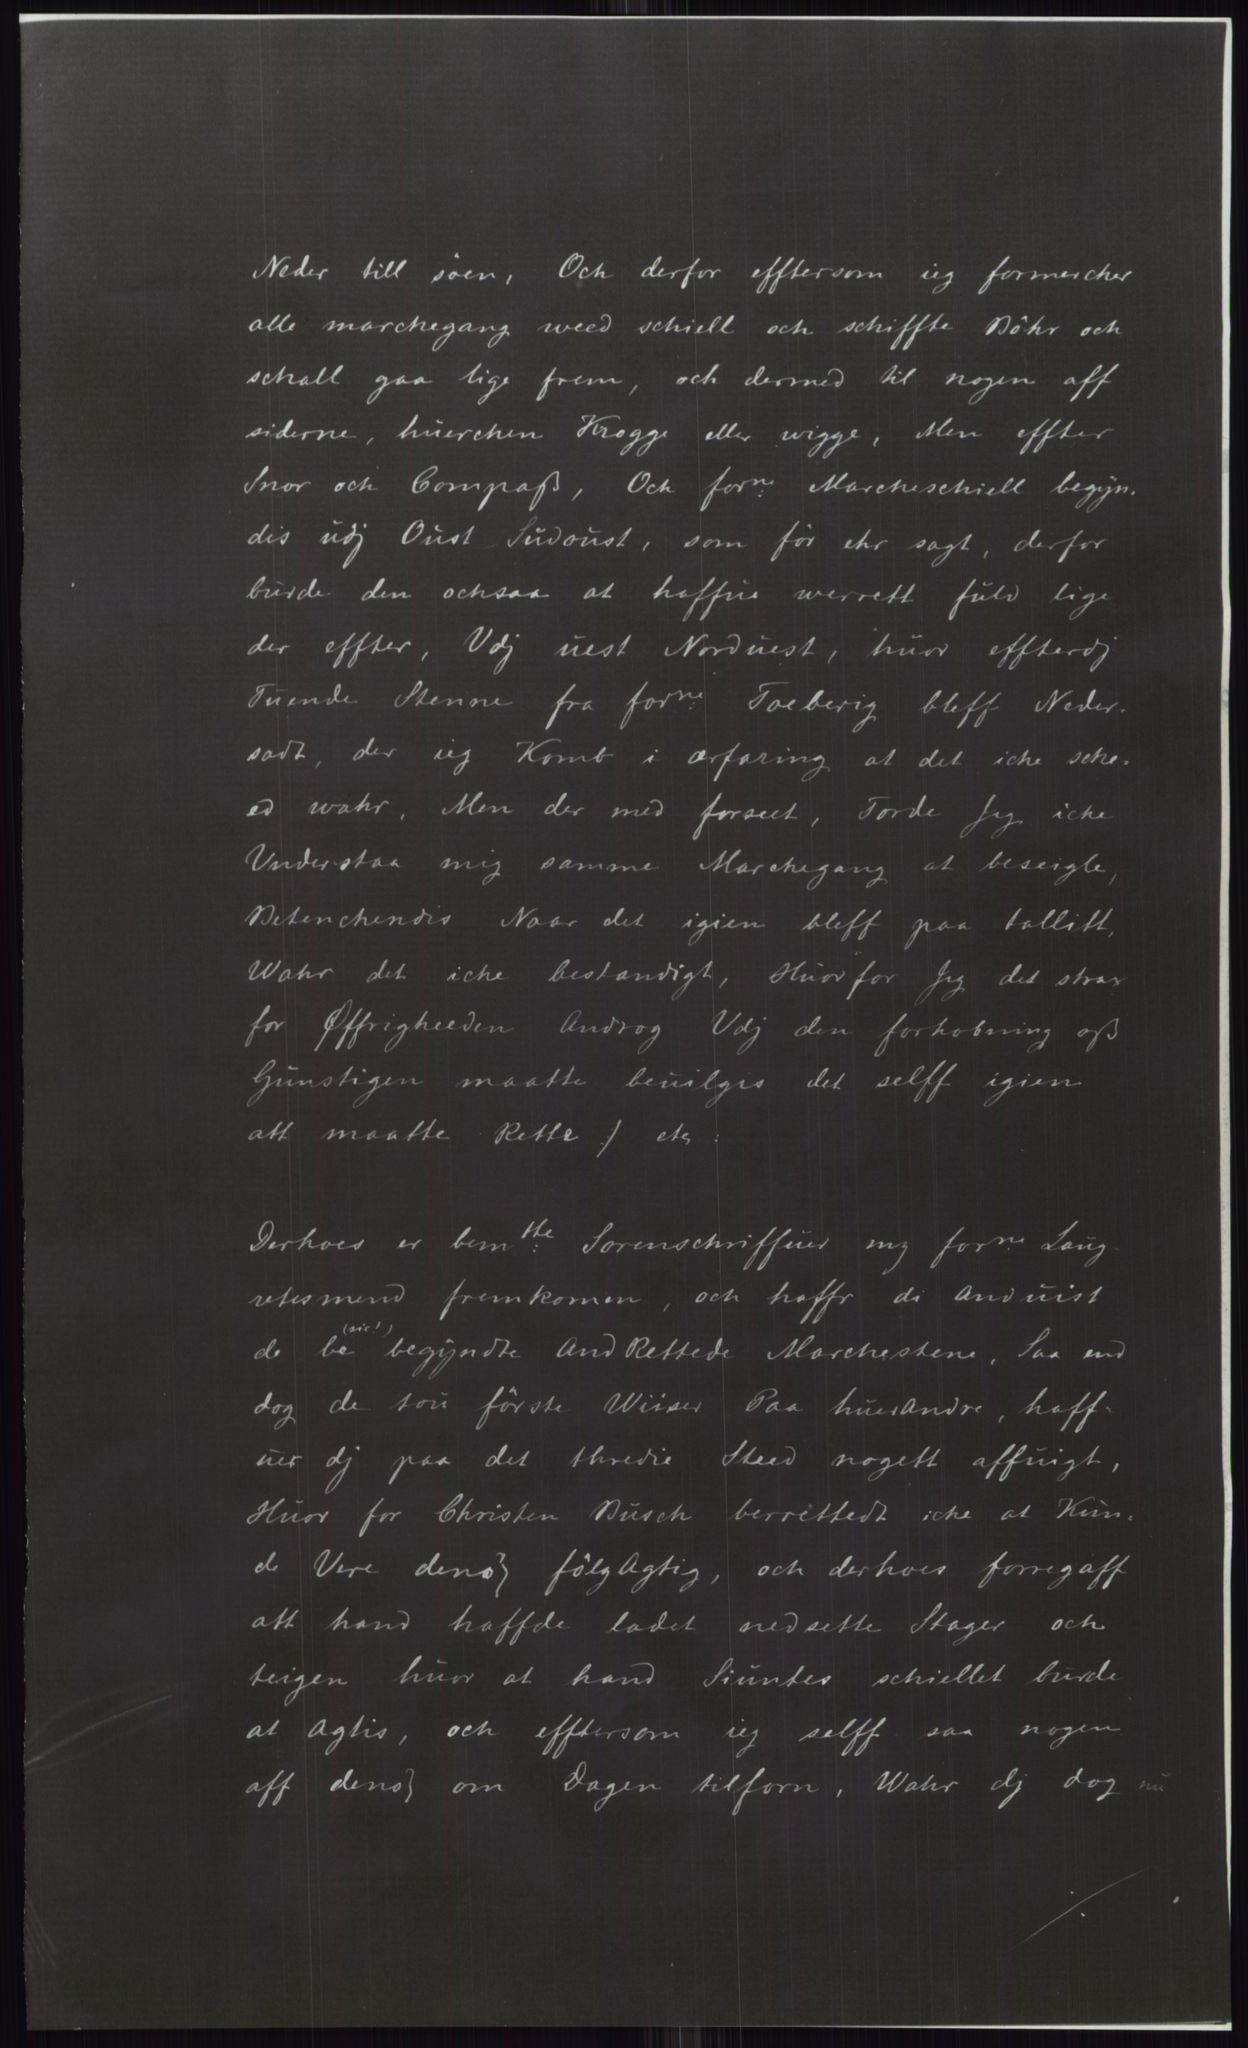 Neder till söen, Och derfor efftersom ieg formercher
alle marchegang weed schiell och schiffte Böhr och
schall gaa lige frem, och dermed til nogen aff
siderne, huerchen Krogge eller wigge, Men effter
Snor och Compaß, Och forne: Marcheschiell begÿn-
dis udj Oust Sudoust, som för ehr sagt, derfor
burde den ochsaa at haffue werrett fuld lige
der effter, Vdj uest Norduest, huor effterdj
Tuende Stenne fra forne: Taeberig bleff Neder-
sadt, der ieg Komb i ærfaring at det iche sche-
ed wahr, Men der med forseet, Torde Jeg iche
Understaa mig samme Marchegang at beseigle,
Betenchendis Naar det igien bleff paa tallitt,
Wahr det iche bestandigt, Huor for Jeg det strax
for Øffrigheeden Androg Vdj den forhobning oß
Gunstigen maatte beuilgis det selff igien
att maatte Rette / etc:
Derhoes er bemthe: Sorenschriffuer my forne: Laug-
retismend fremkomen, och haffr di Anduist
de be (sic!) begÿndte And Rettede Marchestene, Saa end
dog de tou förste Wiiser Paa huerAndre, haff-
uer dj paa det thredie Steed nogett affuigt,
Huor for Christen Busch berrettedt iche at Kun-
de Vere dens fölgAgtig, och derhoes forregaff
att hand haffde ladet nedsette Stager och
teigen huor at hand Siuntes schiellet burde
at Agtis, och efftersom ieg selff saa nogen
aff dens om Dagen tilforn, Wahr dj dog nu
./.